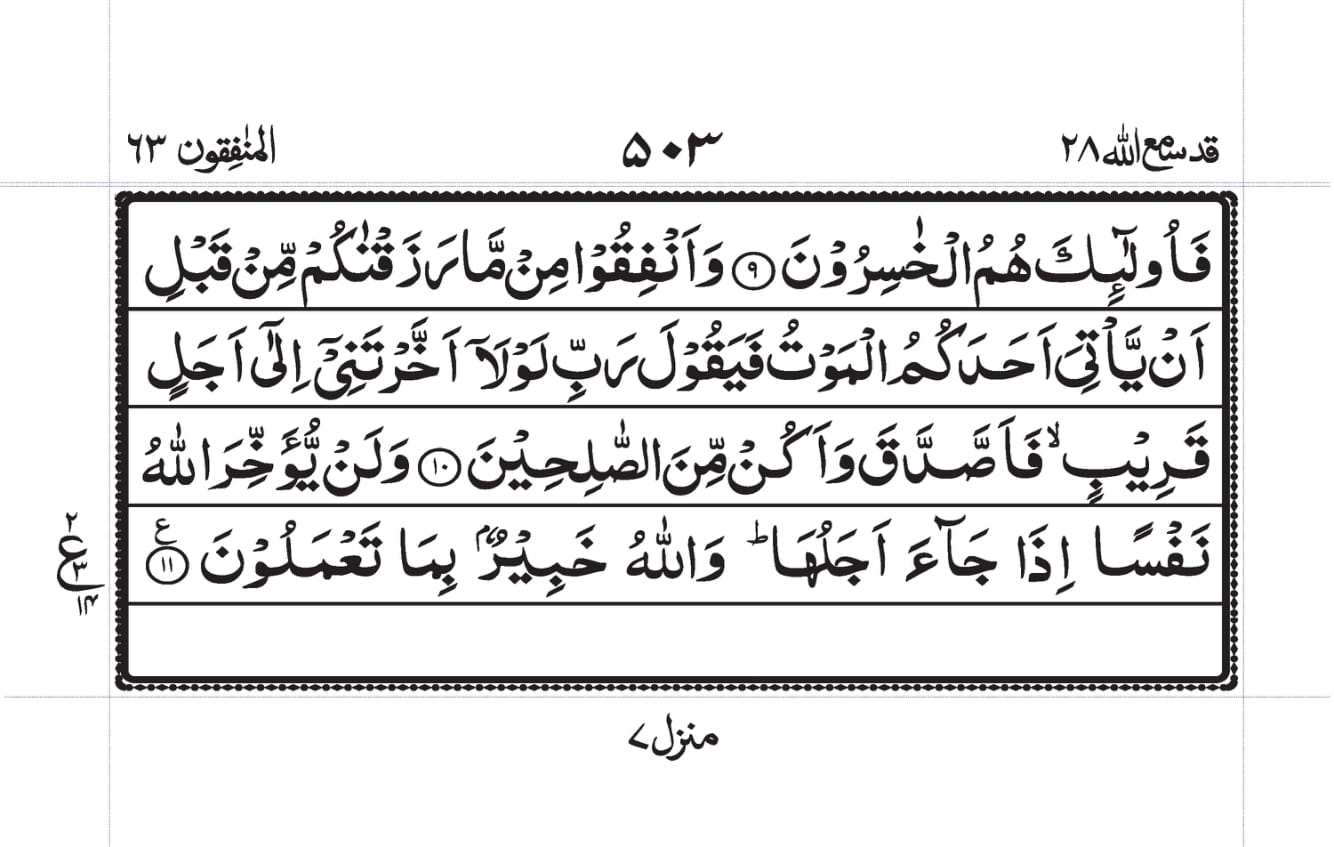 قد سمع الله ٢٨
۵۰۳
المنٰفِقون ٦٣
فَاُولٰٓئِكَ هُمُ الْخٰسِرُوْنَ ۹ وَاَنْفِقُوْا مِنْ مَّا رَزَقْنٰكُمْ مِّنْ قَبْلِ
اَنْ يَّاْتِيَ اَحَدَكُمُ الْمَوْتُ فَيَقُوْلَ رَبِّ لَوْلَاۤ اَخَّرْتَنِيْۤ اِلٰۤى اَجَلٍ
قَرِيْبٍ ۙ فَاَصَّدَّقَ وَاَكُنْ مِّنَ الصّٰلِحِيْنَ ۱۰ وَلَنْ يُّؤَخِّرَ اللّٰهُ
نَفْسًا اِذَا جَآءَ اَجَلُهَا ؕ وَاللّٰهُ خَبِيْرٌۢ بِمَا تَعْمَلُوْنَ ۱۱ ع
٢
ع
٣
١۴
منزل ٧